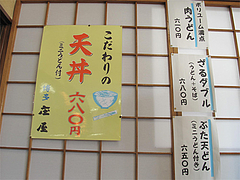 こだわりの
天丼
(ミニうどん付)
六八〇円
庄屋
ボリューム満点
肉うどん
六一〇円
ざるダブル
(うどん+そば)
六八〇円
ぶた天どん
(ミニうどん付き)
六五〇円